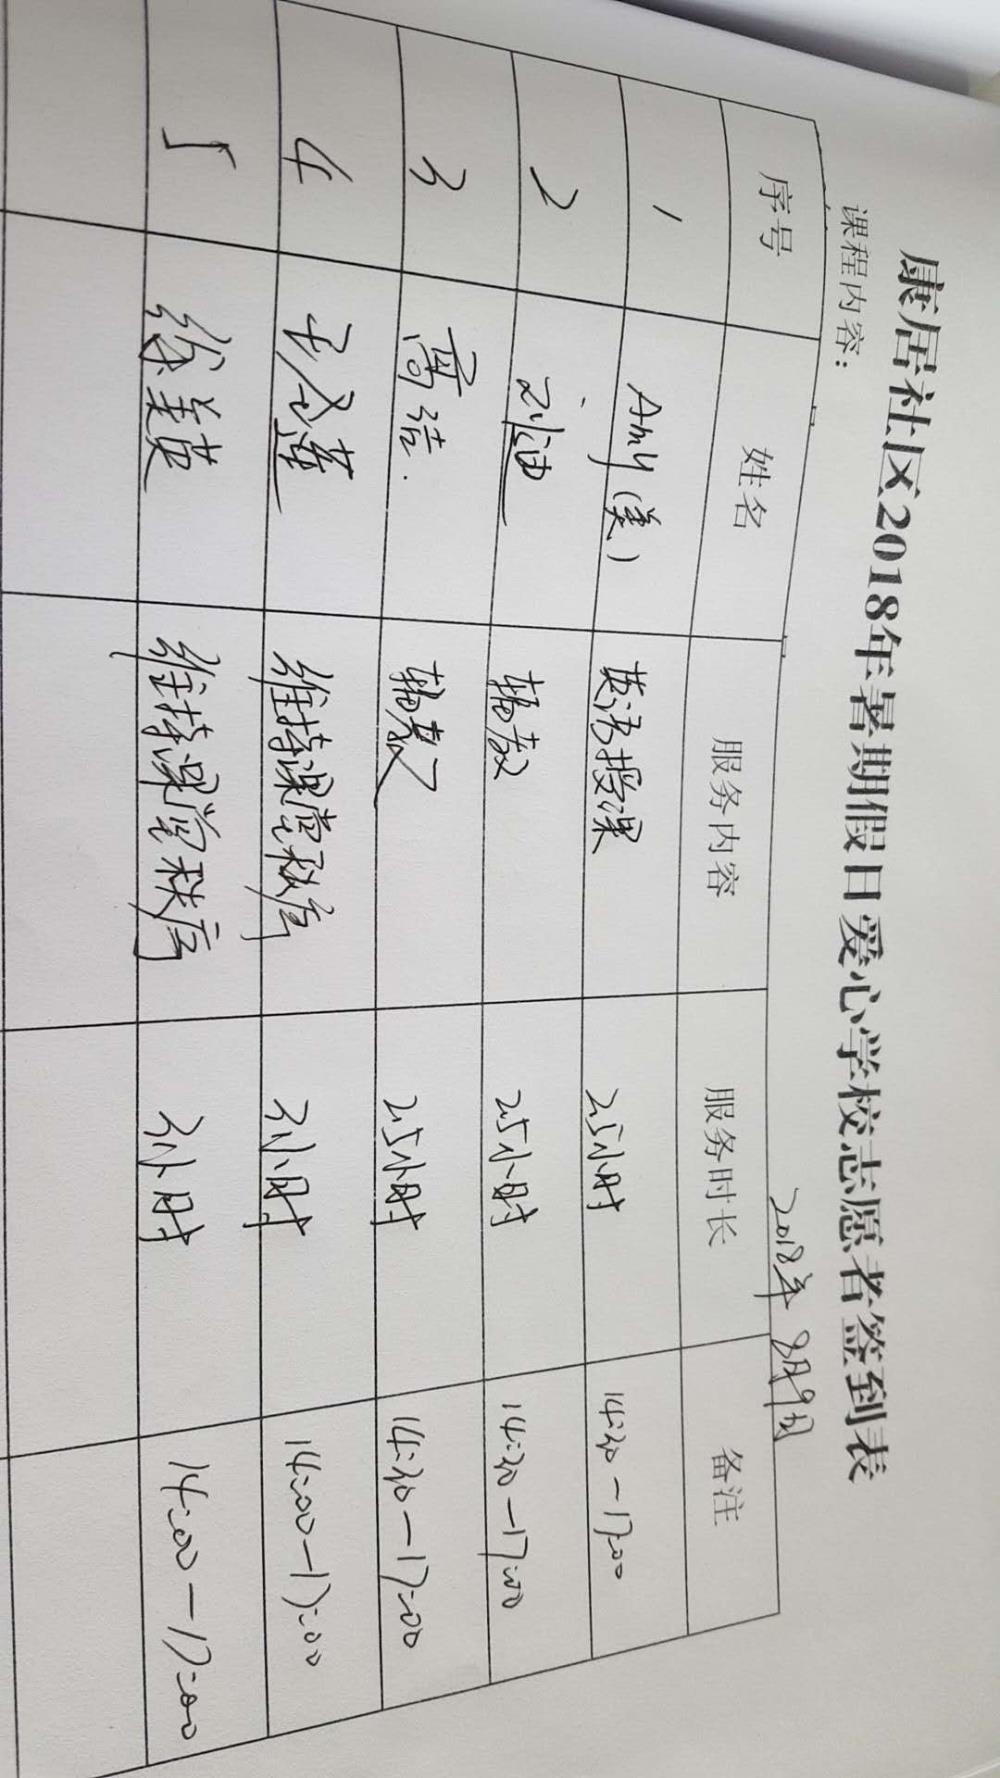 康居社区2018年暑期假日爱心学校志愿者签到表
课程内容： 2018年8月9日
序号 姓名 服务内容 服务时长 备注
1 Amy（美） 英语授课 2.5小时 14:30-17:00
2 刘迪 辅教 2.5小时 14:30-17:00
3 高洁. 辅教 2.5小时 14:30-17:00
4 王莲 维持课堂秩序 3小时 14:00-17:00
5 徐美英 维持课堂秩序 3小时 14:00-17:00